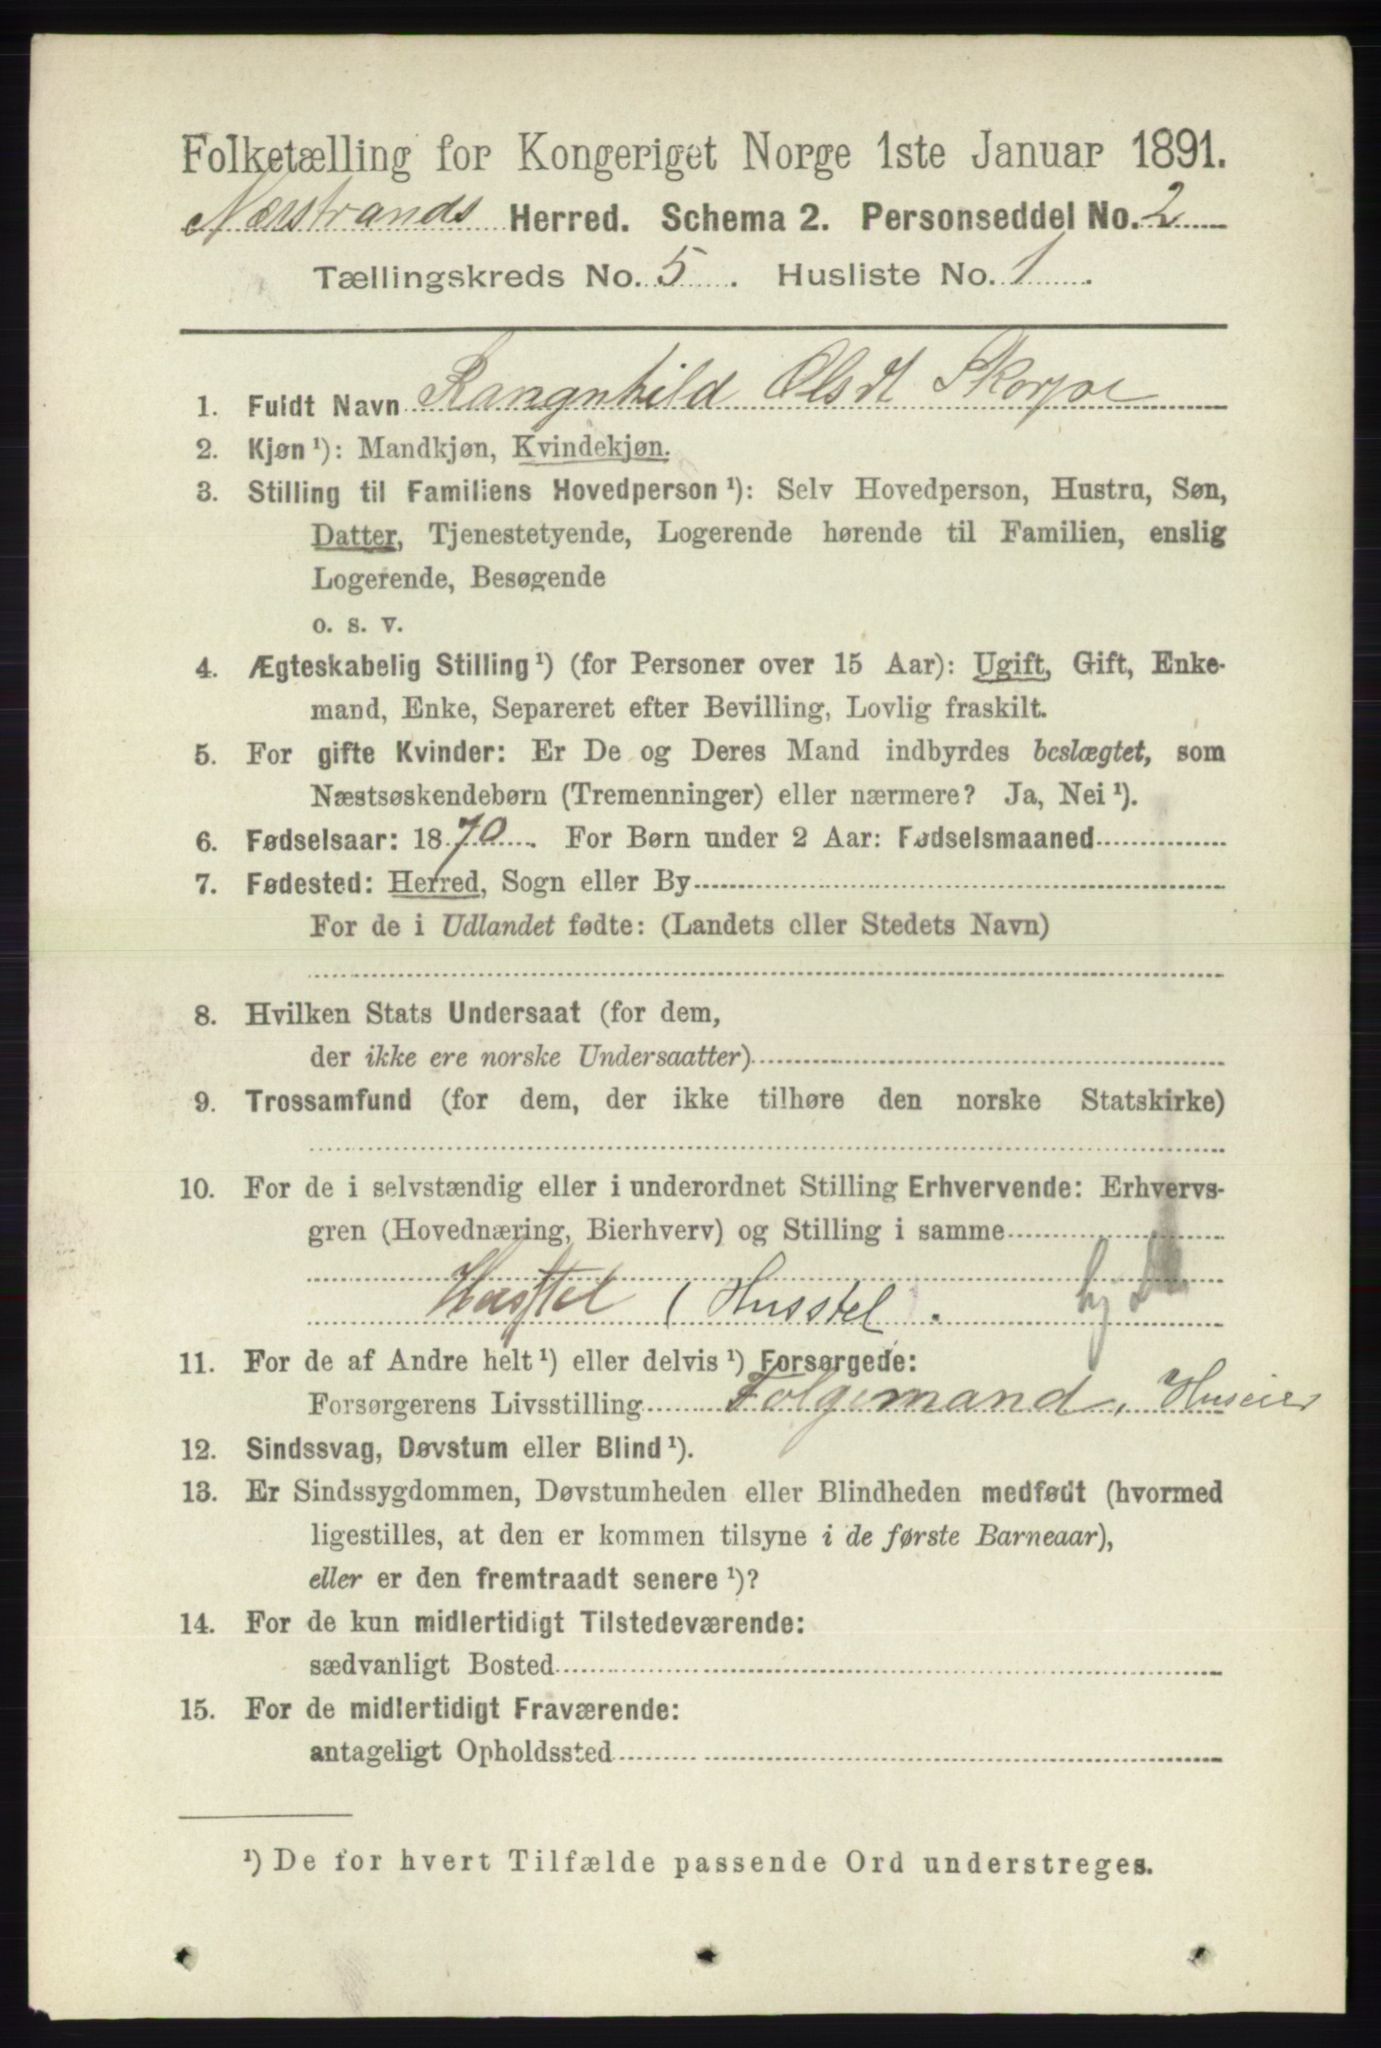 Folketælling for Kongeriget Norge 1ste Januar 1891.
Nærstrands Herred. Schema 2. Personseddel No. 2
Tællingskreds No. 5. Husliste No. 1.
1. Fuldt Navn Rangnhild Olsdt Skorpe
2. Kjøn¹): Mandkjøn, Kvindekjøn.
3. Stilling til Familiens Hovedperson¹): Selv Hovedperson, Hustru, Søn,
Datter, Tjenestetyende, Logerende hørende til Familien, enslig
Logerende, Besøgende
o. s. v.
4. Ægteskabelig Stilling¹) (for Personer over 15 Aar): Ugift, Gift, Enke-
mand, Enke, Separeret efter Bevilling, Lovlig fraskilt.
5. For gifte Kvinder: Er De og Deres Mand indbyrdes beslægtet, som
Næstsøskendebørn (Tremenninger) eller nærmere? Ja, Nei¹).
6. Fødselsaar: 1870. For Børn under 2 Aar: Fødselsmaaned
7. Fødested: Herred, Sogn eller By
For de i Udlandet fødte: (Landets eller Stedets Navn)
8. Hvilken Stats Undersaat (for dem,
der ikke ere norske Undersaatter)
9. Trossamfund (for dem, der ikke tilhøre den norske Statskirke)
10. For de i selvstændig eller i underordnet Stilling Erhvervende: Erhvervs-
gren (Hovednæring, Bierhverv) og Stilling i samme
(Husstel.
11. For de af Andre helt¹) eller delvis¹) Forsørgede:
Forsørgerens Livsstilling Folgemand, Huseier
12. Sindssvag, Døvstum eller Blind¹).
13. Er Sindssygdommen, Døvstumheden eller Blindheden medfødt (hvormed
ligestilles, at den er kommen tilsyne i de første Barneaar),
eller er den fremtraadt senere¹)?
14. For de kun midlertidigt Tilstedeværende:
sædvanligt Bosted
15. For de midlertidigt Fraværende:
antageligt Opholdssted
¹) De for hvert Tilfælde passende Ord understreges.